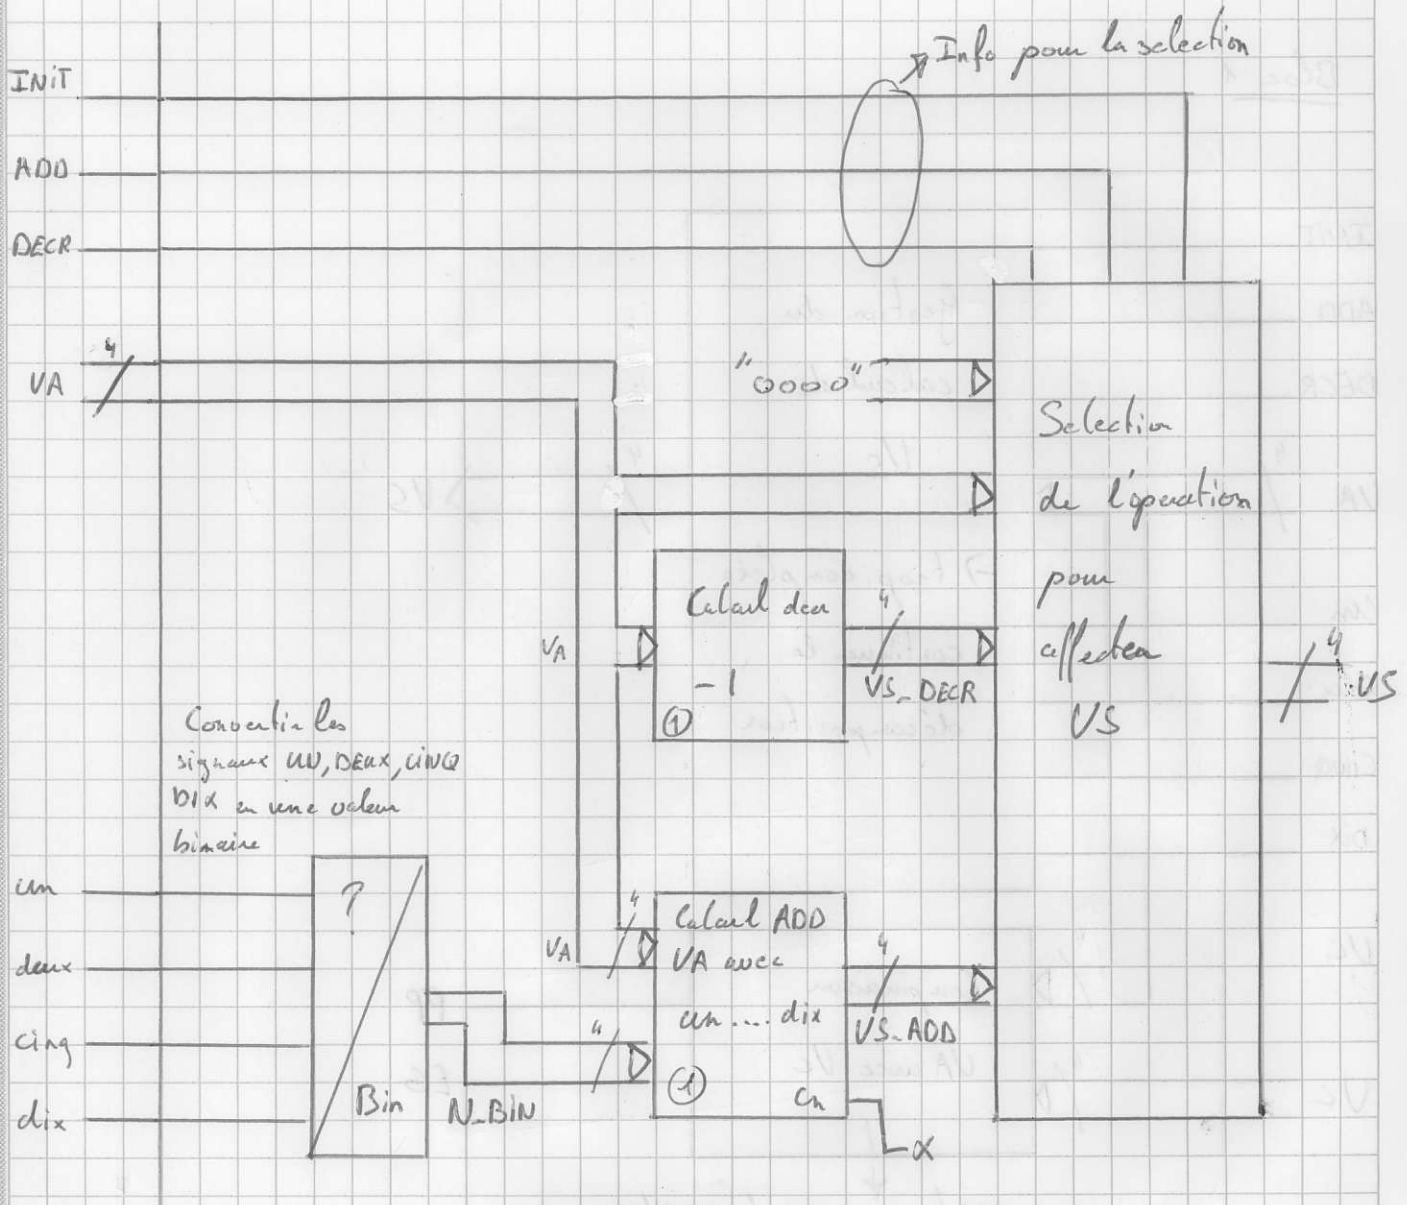 Info pour la selection
INIT
ADD
DECR
4
VA
"0000"
Selection
de l'operation
pour
affecter
VS
4
VS
Calcul decr
-1
①
VA
4
VS_DECR
Convertir les
signaux UN, DEUX, CINQ
DIX en une valeur
binaire
un
deux
cinq
dix
?
Bin
N_BIN
4
VA
4
Calcul ADD
VA avec
un .... dix
①
Cn
4
VS_ADD